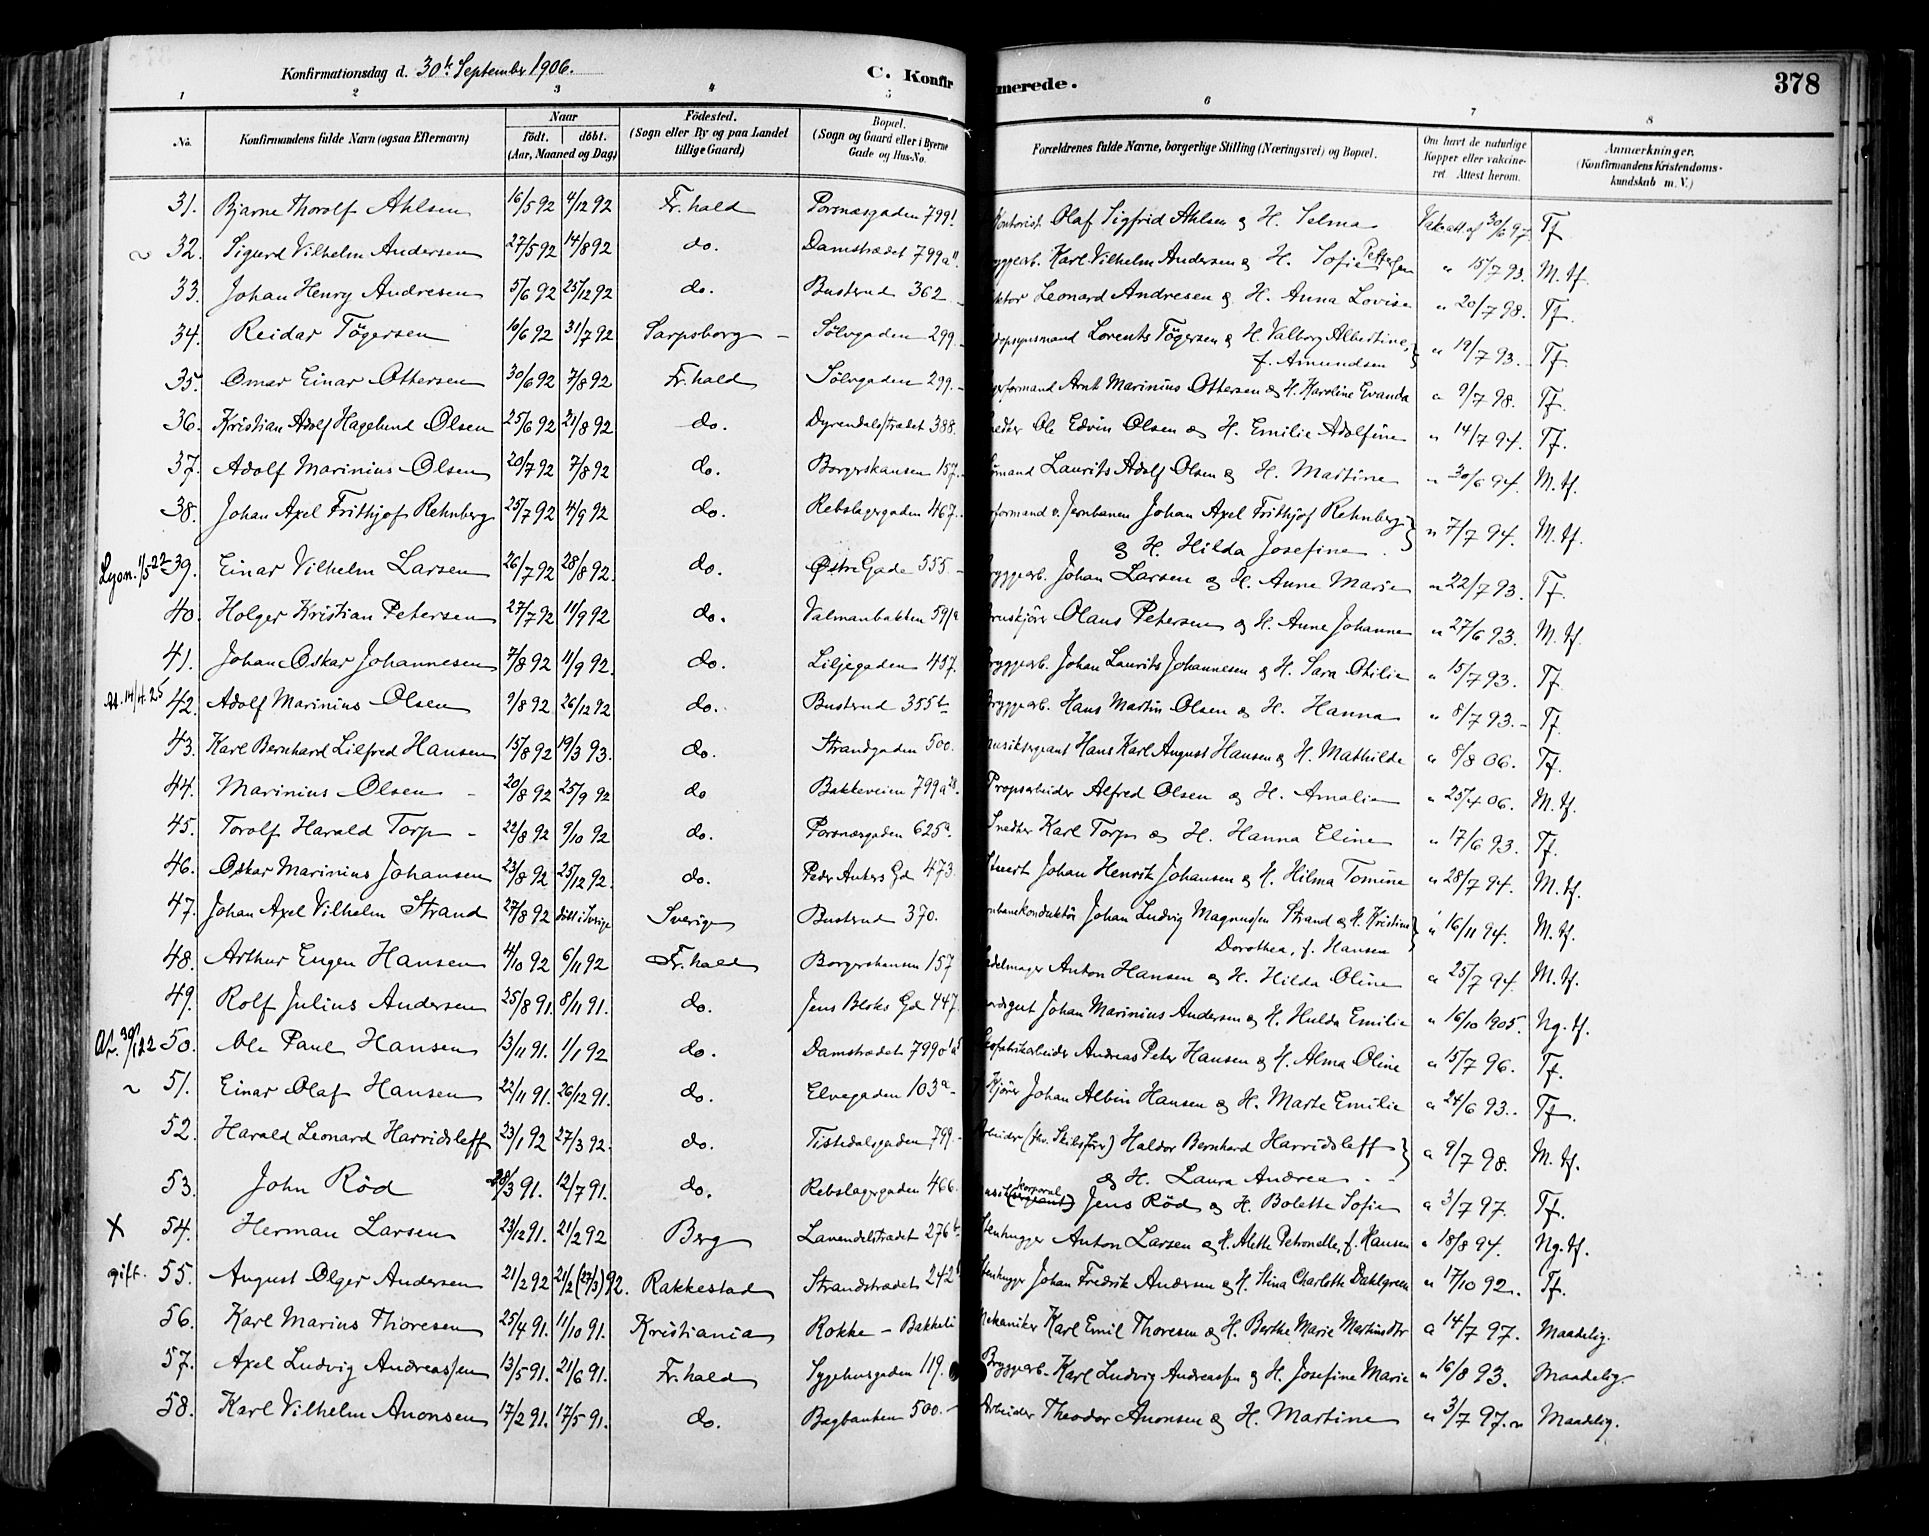 Konfirmationsdag d. 30te September 1906.
C. Konfirmerede.
378
1 2 3 4 5 6 7 8
No.
Konfirmandens fulde Navn (ogsaa Efternavn)
Naar
födt. döbt.
(Aar, Maaned og Dag)
Födested.
(Sogn eller By og paa Landet
tillige Gaard)
Bopæl.
(Sogn og Gaard eller i Byerne
Gade og Hus-No.
Forældrenes fulde Navne, borgerlige Stilling (Næringsvei) og Bopæl.
Om havt de naturlige
Kopper eller vakcine-
ret Attest herom.
Anmærkninger.
(Konfirmandens Kristendoms-
kundskab m. V.)
31. Bjarne Thorolf Ahlsen 16/5 92 4/12 92 Fr.hald Porsnæsgaden 799 Kontorist Olaf Sigfrid Ahlsen & H. Selma Vak.att. af 30/6 97 Tf.
32. Sigurd Vilhelm Andersen 27/5 92 14/8 92 do. Damstrædet 799a Karl Vilhelm Andersen & H. Sofie Pettersen " 15/7 93. M. tf.
33. Johan Henry Andresen 5/6 92 25/12 92 do. Busterud 362 Leonard Andresen & H. Anna Lovise " 20/7 98. Tf.
34. Reidar Tögersen 10/6 92 31/7 92 Sarpsborg - Sølvgaden 299. Lorents Tögersen & H. Valborg Albertine,
f. Amundsen " 19/7 93. Tf.
35. Omar Einar Ottersen 30/6 92 7/8 92 Fr.hald Sølvgaden 299. Arnt Marinius Ottersen & H. Karoline Evanda " 9/7 98. Tf.
36. Kristian Adolf Hagelund Olsen 25/6 92 21/8 92 do. Dyrendalstrædet 388. Ole Edvin Olsen & H. Emilie Adolfine " 14/7 94. Tf.
37. Adolf Marinius Olsen 20/7 92 7/8 92 do. Borgerskansen 157. Laurits Adolf Olsen & H. Martine " 30/6 94. M. tf.
38. Johan Axel Frithjof Rehnberg 25/7 92 4/9 92 do. Rebslagergaden 467. formand v. Jernbanen Johan Axel Frithjof Rehnberg
& H. Hilda Josefine " 7/7 94. M. tf.
39. Einar Vilhelm Larsen 26/7 92 28/8 92. do. Østre Gade 555 Bryggearb. Johan Larsen & H. Anne Marie " 22/7 93. Tf.
40. Holger Kristian Petersen 27/7 92 11/9 92 do. Valmanbakken 591a Bruskjörer Olaus Petersen & H. Anne Johanne " 27/6 93. M. tf.
41. Johan Oskar Johannesen 7/8 92 11/9 92. do. Liljegaden 457. Bryggearb. Johan Laurits Johannesen & H. Sara Othilie " 15/7 93. Tf.
42. Adolf Marinius Olsen 9/8 92 26/12 92 do. Busterud 355b Bryggearb. Hans Martin Olsen & H. Hanna " 8/7 93.- Tf.
43. Karl Bernhard Lilfred Hansen 15/8 92 19/3 93. do. Strandgaden 500. Musiksergeant Hans Karl August Hansen & H. Mathilde " 8/8 06. Tf.
44. Marinius Olsen - 20/8 92 25/9 92 do Bakkeveien 799a Propsarbeider Alfred Olsen & H. Amalie " 25/4 06. M. tf.
45. Torolf Harald Torp - 22/8 92 9/10 92 do. Porsnæsgaden 625a. Snedker Karl Torp & H. Hanna Eline " 17/6 93. Tf.
46. Oskar Marinius Johansen 23/8 92 25/12 92. do. Peder Ankers Gd. 473 Stuert Johan Henrik Johansen & H. Hilma Tomine " 28/7 94. M. tf.
47. Johan Axel Vilhelm Strand 27/8 92 döbt i Sverige Sverige Busterud 370. Jernbanekonduktör Johan Ludvig Magnussen Strand & H. Kristine
Dorothea, f. Hansen " 16/11 94. M. tf.
48. Arthur Eugen Hansen 4/10 92 6/11 92 Fr.hald Borgerskansen 157 Sadelmager Anton Hansen & H. Hilda Oline " 25/7 94 M. tf.
49. Rolf Julius Andersen 25/8 91. 8/11 91. do. Jens Bloks Gd 447. Johan Marinius Andersen & H. Hulda Emilie " 16/10 1905. Ng. tf.
50. Ole Paul Hansen 13/11 91. 1/1 92 do. Damstrædet Skofabrikarbeider Andreas Peter Hansen & H. Alma Oline " 15/7 96. Tf.
51. Einar Olaf Hansen 22/11 91. 26/12 91. do. Elvegaden 103a Kjörer Johan Albin Hansen & H. Marte Emilie " 24/6 93. Tf.
52. Harald Leonard Harridsleff 23/1 92 27/3 92. do. Tistedalsgaden 799 Arbeider (fhv. Skibsförer) Haldor Bernhard Harridsleff
& H. Laura Andrea " 9/7 98. M. tf.
53. John Röd 28/3 91. 12/7 91. do. Rebslagergaden 466. korporal Jens Röd & H. Bolette Sofie " 3/7 97. Tf.
X 54. Herman Larsen 23/12 91. 21/2 92 Berg Lavendelstrædet 276b Stenhugger Anton Larsen & H. Alette Petronelle, f. Hansen " 18/8 94. Ng. tf.
gift. 55. August Olger Andersen 21/2 92 21/2 (27/3) 92. Rakkestad Strandstrædet 242 Stenhugger Johan Fredrik Andersen & H. Stina Charlotte Dahlgreen " 17/10 92. Tf.
56. Karl Marius Thoresen 25/4 91. 11/10 91. Kristiania Rokke - Bakkeli Mekaniker Karl Emil Thoresen & H. Berthe Marie Martinsdtr " 14/7 97. Maadelig.
57. Axel Ludvig Andreassen 13/5 91. 21/6 91. Fr.hald Sygehusgaden 119. Bryggearb. Karl Ludvig Andreassen & H. Josefine Marie " 16/8 93. Maadelig.
58. Karl Vilhelm Anonsen 17/2 91. 17/5 91. do. Bagbanken 500. Arbeider Theodor Anonsen & H. Martine " 3/7 97. Maadelig.